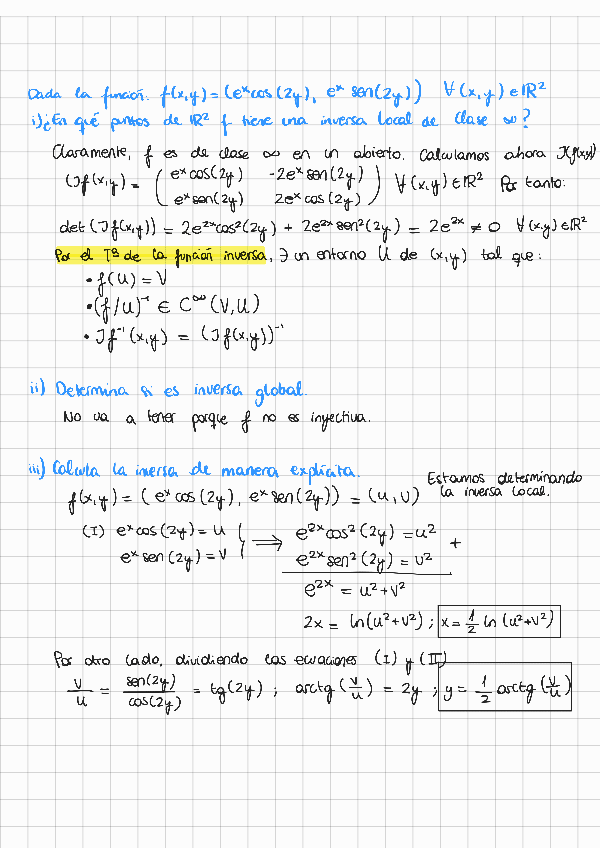 Dada la función: f(x,y) = (eˣcos(2y), eˣ sen(2y)) ∀(x,y)∈ℝ²
i) ¿En qué puntos de ℝ² f tiene una inversa local de clase ∞?
Claramente, f es de clase ∞ en un abierto. Calculamos ahora Jf(x,y)
(Jf(x,y) = ( eˣcos(2y) -2eˣsen(2y) ) ∀(x,y)∈ℝ² Por tanto:
eˣsen(2y) 2eˣcos(2y)
det(Jf(x,y)) = 2e²ˣcos²(2y) + 2e²ˣsen²(2y) = 2e²ˣ ≠ 0 ∀(x,y)∈ℝ²
Por el Tª de la función inversa, ∃ un entorno U de (x,y) tal que:
• f(U) = V
• (f/U)⁻¹ ∈ C^∞(V,U)
• Jf⁻¹(x,y) = (Jf(x,y))⁻¹
ii) Determina si es inversa global.
No va a tener porque f no es inyectiva.
iii) Calcula la inersa de manera explícita.
Estamos determinando
la inversa local.
f(x,y) = (eˣ cos(2y), eˣsen(2y)) = (u,v)
(I) eˣcos(2y) = u
eˣsen(2y) = v
⟹ e²ˣcos²(2y) = u²
e²ˣsen²(2y) = v² +
e²ˣ = u²+v²
2x = ln(u²+v²) ; x = 1/2 ln(u²+v²)
Por otro lado, dividiendo las ecuaciones (I) y (II)
v/u = sen(2y)/cos(2y) = tg(2y) ; arctg(v/u) = 2y ; y = 1/2 arctg(v/u)